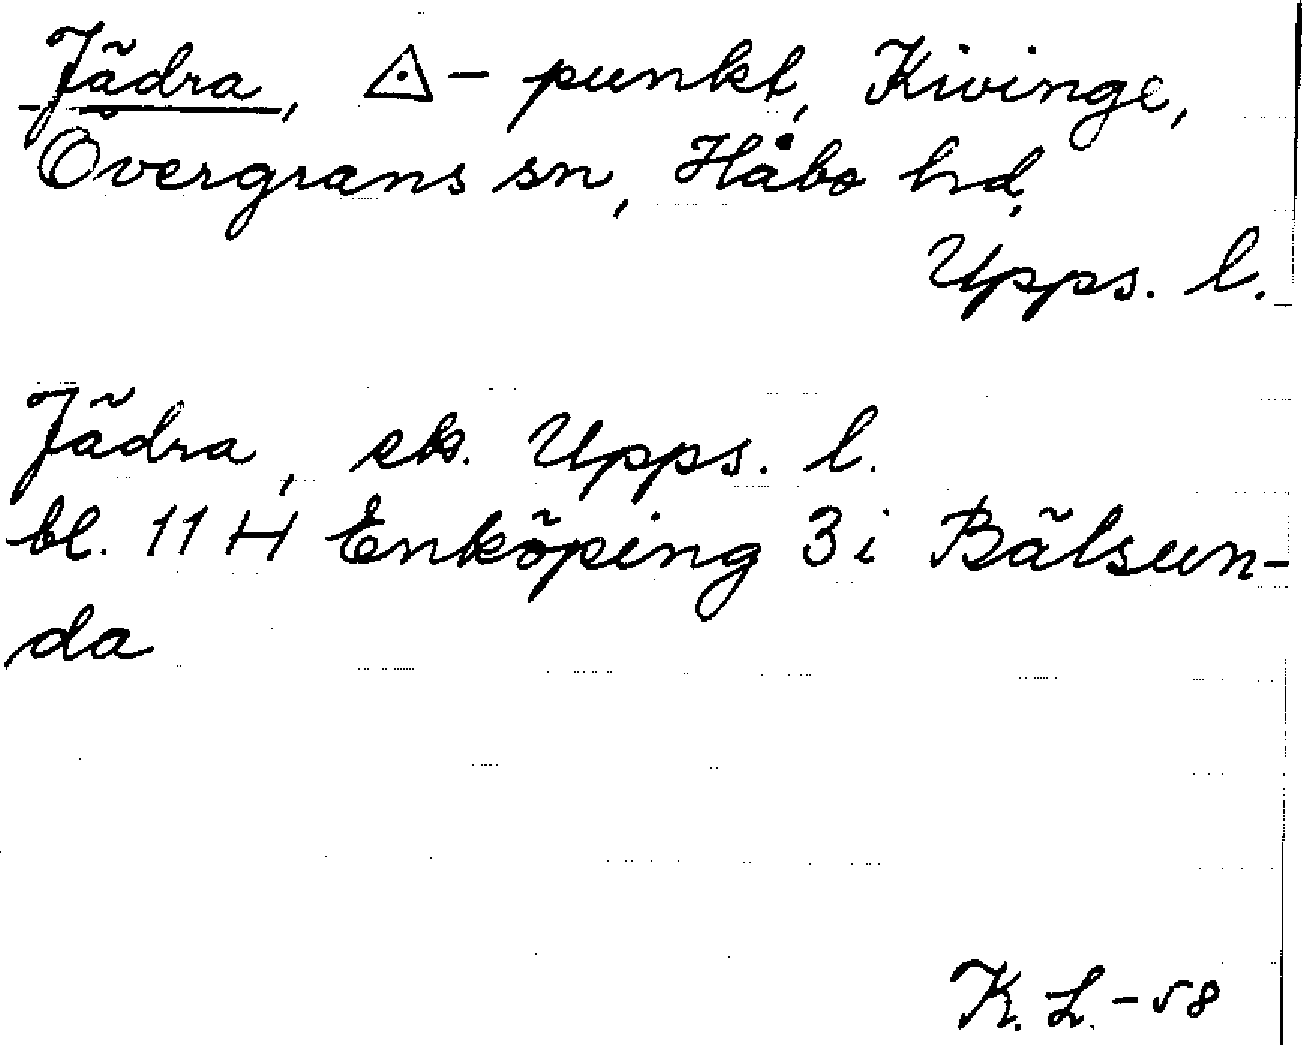 Jädra, △ - punkt, Kivinge,
Övergrans sn, Håbo hd,
Upps. l.
Jädra, ek. Upps. l.
bl. 11 H Enköping 3 i Bälsun-
da
K. L. - 58